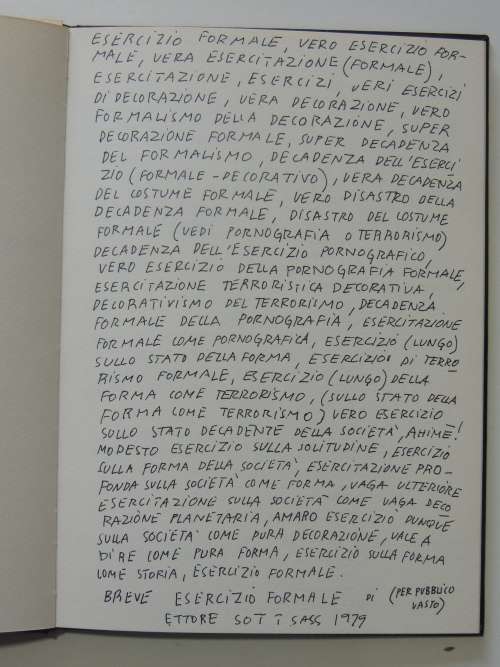 ESERCIZIO FORMALE, VERO ESERCIZIO FOR-
MALE, VERA ESERCITAZIONE (FORMALE),
ESERCITAZIONE, ESERCIZI, VERI ESERCIZI
DI DECORAZIONE, VERA DECORAZIONE, VERO
FORMALISMO DELLA DECORAZIONE, SUPER
DECORAZIONE FORMALE, SUPER DECADENZA
DEL FORMALISMO, DECADENZA DELL'ESERCI
ZIO (FORMALE-DECORATIVO), VERA DECADENZA
DEL COSTUME FORMALE, VERO DISASTRO DELLA
DECADENZA FORMALE, DISASTRO DEL COSTUME
FORMALE (VEDI PORNOGRAFIA O TERRORISMO)
DECADENZA DELL'ESERCIZIO PORNOGRAFICO,
VERO ESERCIZIO DELLA PORNOGRAFIA FORMALE,
ESERCITAZIONE TERRORISTICA DECORATIVA,
DECORATIVISMO DEL TERRORISMO, DECADENZA
FORMALE DELLA PORNOGRAFIA, ESERCITAZIONE
FORMALE COME PORNOGRAFICA, ESERCIZIO (LUNGO)
SULLO STATO DELLA FORMA, ESERCIZIO DI TERRO
RISMO FORMALE, ESERCIZIO (LUNGO) DELLA
FORMA COME TERRORISMO, (SULLO STATO DELLA
FORMA COME TERRORISMO) VERO ESERCIZIO
SULLO STATO DECADENTE DELLA SOCIETÀ, AHIMÈ!
MODESTO ESERCIZIO SULLA SOLITUDINE, ESERCIZIO
SULLA FORMA DELLA SOCIETÀ, ESERCITAZIONE PRO-
FONDA SULLA SOCIETÀ COME FORMA, VAGA ULTERIORE
ESERCITAZIONE SULLA SOCIETÀ COME VAGA DECO
RAZIONE PLANETARIA, AMARO ESERCIZIO DUNQUE
SULLA SOCIETÀ COME PURA DECORAZIONE, VALE A
DIRE COME PURA FORMA, ESERCIZIO SULLA FORMA
COME STORIA, ESERCIZIO FORMALE.
BREVE ESERCIZIO FORMALE DI (PER PUBBLICO
VASTO)
ETTORE SOTTSASS 1979